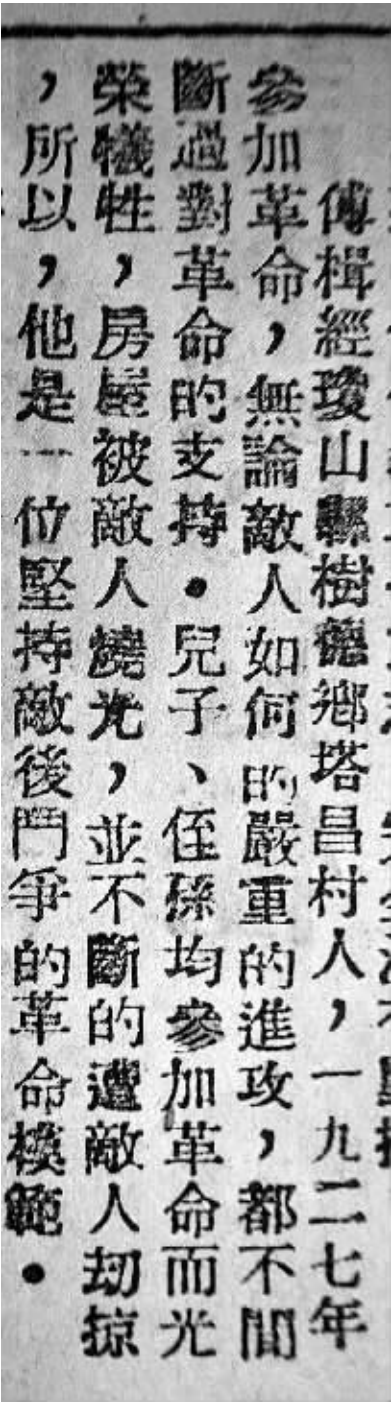 傅楫經瓊山縣樹德鄉塔昌村人，一九二七年
參加革命，無論敵人如何的嚴重的進攻，都不間
斷過對革命的支持．兒子、侄孫均參加革命而光
榮犧牲，房屋被敵人燒光，並不斷的遭敵人刧掠
，所以，他是一位堅持敵後鬥爭的革命模範．